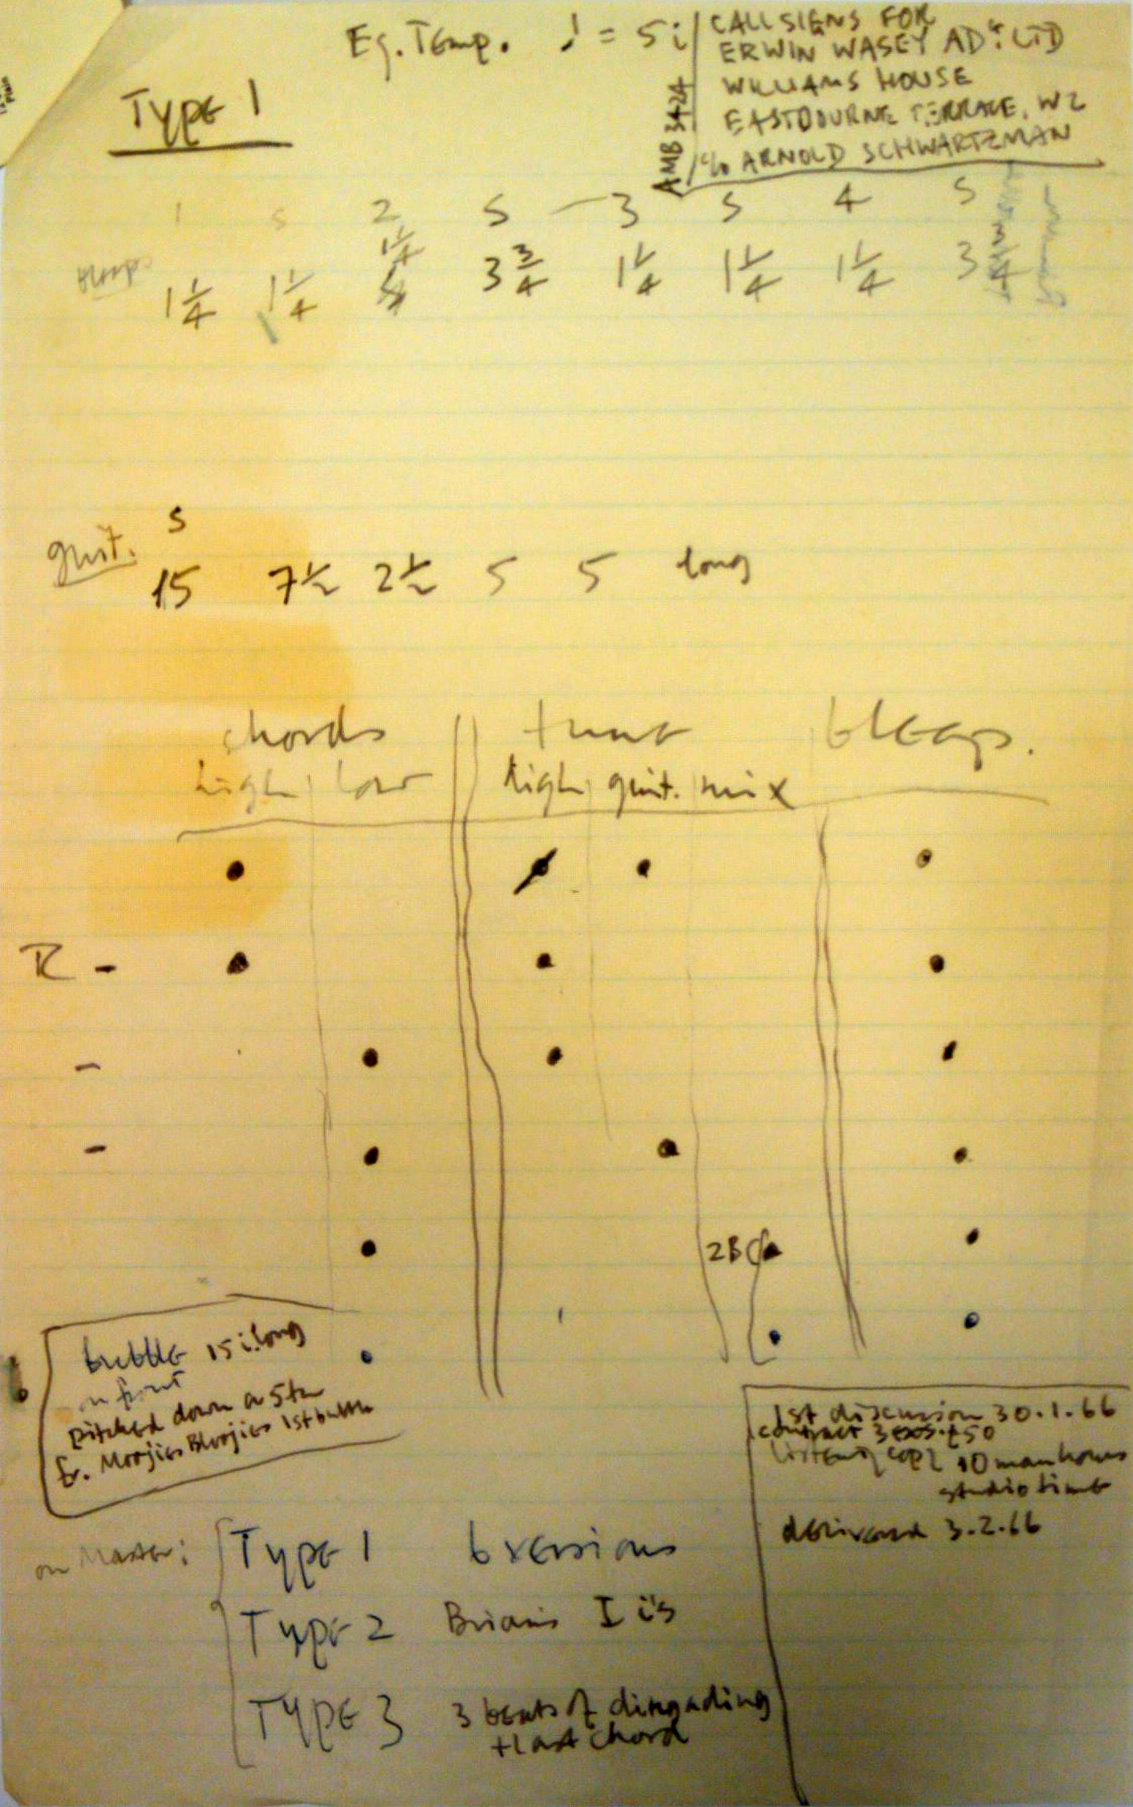 Eq. Temp. ♩ = 5i
CALLSIGNS FOR
ERWIN WASEY ADᵗ. LTD
WILLIAMS HOUSE
EASTBOURNE TERRACE, W2
c/o ARNOLD SCHWARTZMAN
AMB 3424
TYPE 1
1 5 2 5 — 3 5 4 5
bleeps
1¼ 1¼ 1¼ 3¾ 1¼ 1¼ 1¼ 3¾
5
guit.
15 7½ 2½ 5 5 long
chords tune bleeps.
high low high guit. mix
R -
-
-
2B
bubble 15 i. long
on front
pitched down a 5th
fr. Moojies Bloojies 1st bubble
1st discussion 30.1.66
contract 3 exs. £50
listening copy 10 man hours
studio time
delivered 3.2.66
on Master:
TYPE 1 6 versions
TYPE 2 Brian's I i's
TYPE 3 3 beats of dingading
+ last chord